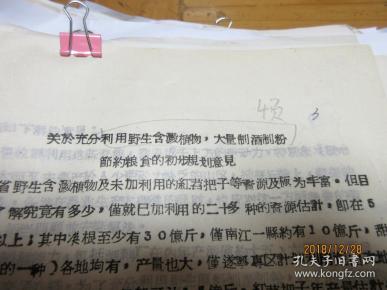 4页 3
关於充分利用野生含澱植物，大量制酒制粉
節約粮食的初步规划意見
省野生含澱植物及未加利用的紅苕把子等香源及为丰富。但目
了解究竟有多少，僅就巳加利用的二十多种的香源估計，即在5
以上；其中准根至少有30億斤，僅南江一縣約有10億斤，
的一种）各地均有，产量也大，僅遂寧專區計
2018/12/28
孔夫子旧书网